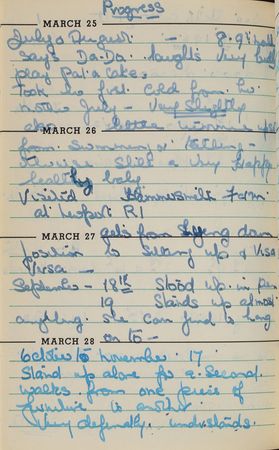 Progress
MARCH 25
July & August: - 8.9
says Da. Da. laughs very
play Pat a Cake.
Took the first cold from
July - Very slightly
MARCH 26
also
from swimming &
otherwise She is a very happy
healthy baby.
Visited Hammersmith Farm
at Newport R I
MARCH 27
gets from lying down
position to sitting up & Visa
Versa -
September - 18th Stood up in pen
19 Stands up almost
anything she can find to hang
MARCH 28
on to -
October to November 17
Stand up alone for a second.
walks from one piece of
furniture to another
Very definately understands.